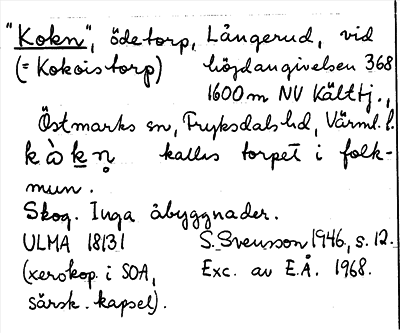 "Kokn", ödetorp, Långerud, vid
(= Kokoistorp) höjdangivelsen 368
1600 m NV Kälttj.,
Östmarks sn, Fryksdals hd, Värml. l.
kòkn̥ kallas torpet i folk-
mun.
Skog. Inga åbyggnader.
ULMA 18131 S. Svensson 1946, s. 12.
(xerokop. i SOA, Exc. av E.Å. 1968.
särsk. kapsel).